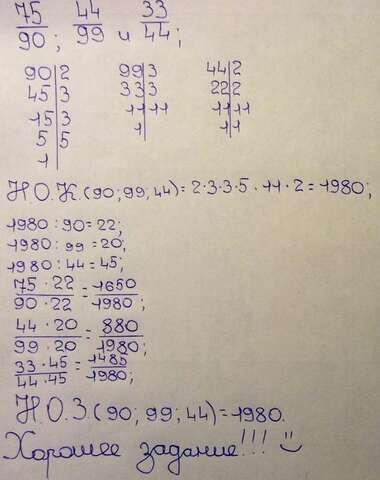 75/90; 44/99 и 33/44;
90|2 99|3 44|2
45|3 33|3 22|2
15|3 11|11 11|11
5|5 1| 1|1
1|
Н.О.К.(90;99;44)=2·3·3·5·11·2=1980;
1980:90=22;
1980:99=20;
1980:44=45;
75·22/90·22=1650/1980;
44·20/99·20=880/1980;
33·45/44·45=1485/1980;
Н.О.З.(90;99;44)=1980.
Хорошее задание!!! :)